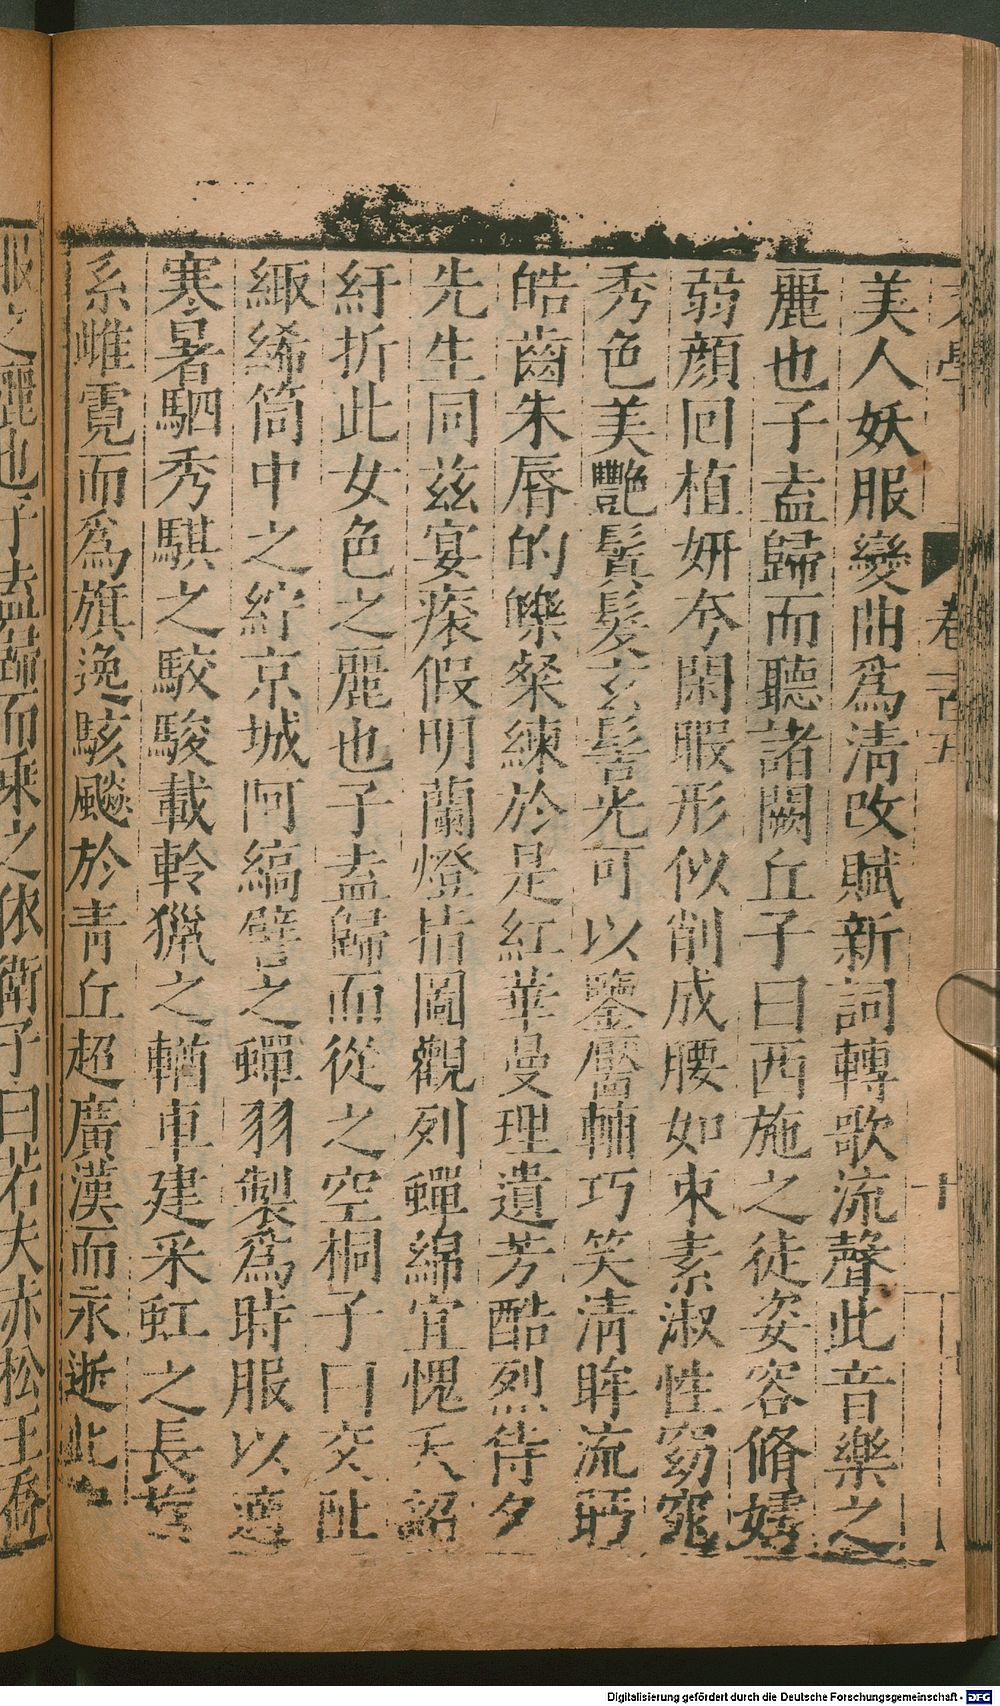 美人妖服變曲爲淸改賦新詞轉歌流聲此音樂之
麗也子盍歸而聽諸闕丘子曰西施之徒姿容脩嫮
弱顔回植妍夸閑暇形似削成腰如束素淑性窈窕
秀色美艷鬒髮玄髻光可以鑒靨輔巧笑淸眸流眄
皓齒朱脣的皪粲練於是紅華曼理遺芳酷烈侍夕
先生同茲宴瘱假明蘭燈指圖觀列蟬綿宜愧夭韶
紆折此女色之麗也子盍歸而從之空桐子曰交阯
緅絺筒中之紵京城阿縞譬之蟬羽製爲時服以適
寒暑駟秀騏之駮駿載軨獵之輶車建采虹之長
系雌霓而爲旗逸駭飈於靑丘超廣漢而永逝此
卷
服之麗也子盍歸而乘之依衛子曰若夫赤松王喬
Digitalisierung gefördert durch die Deutsche Forschungsgemeinschaft - DFG